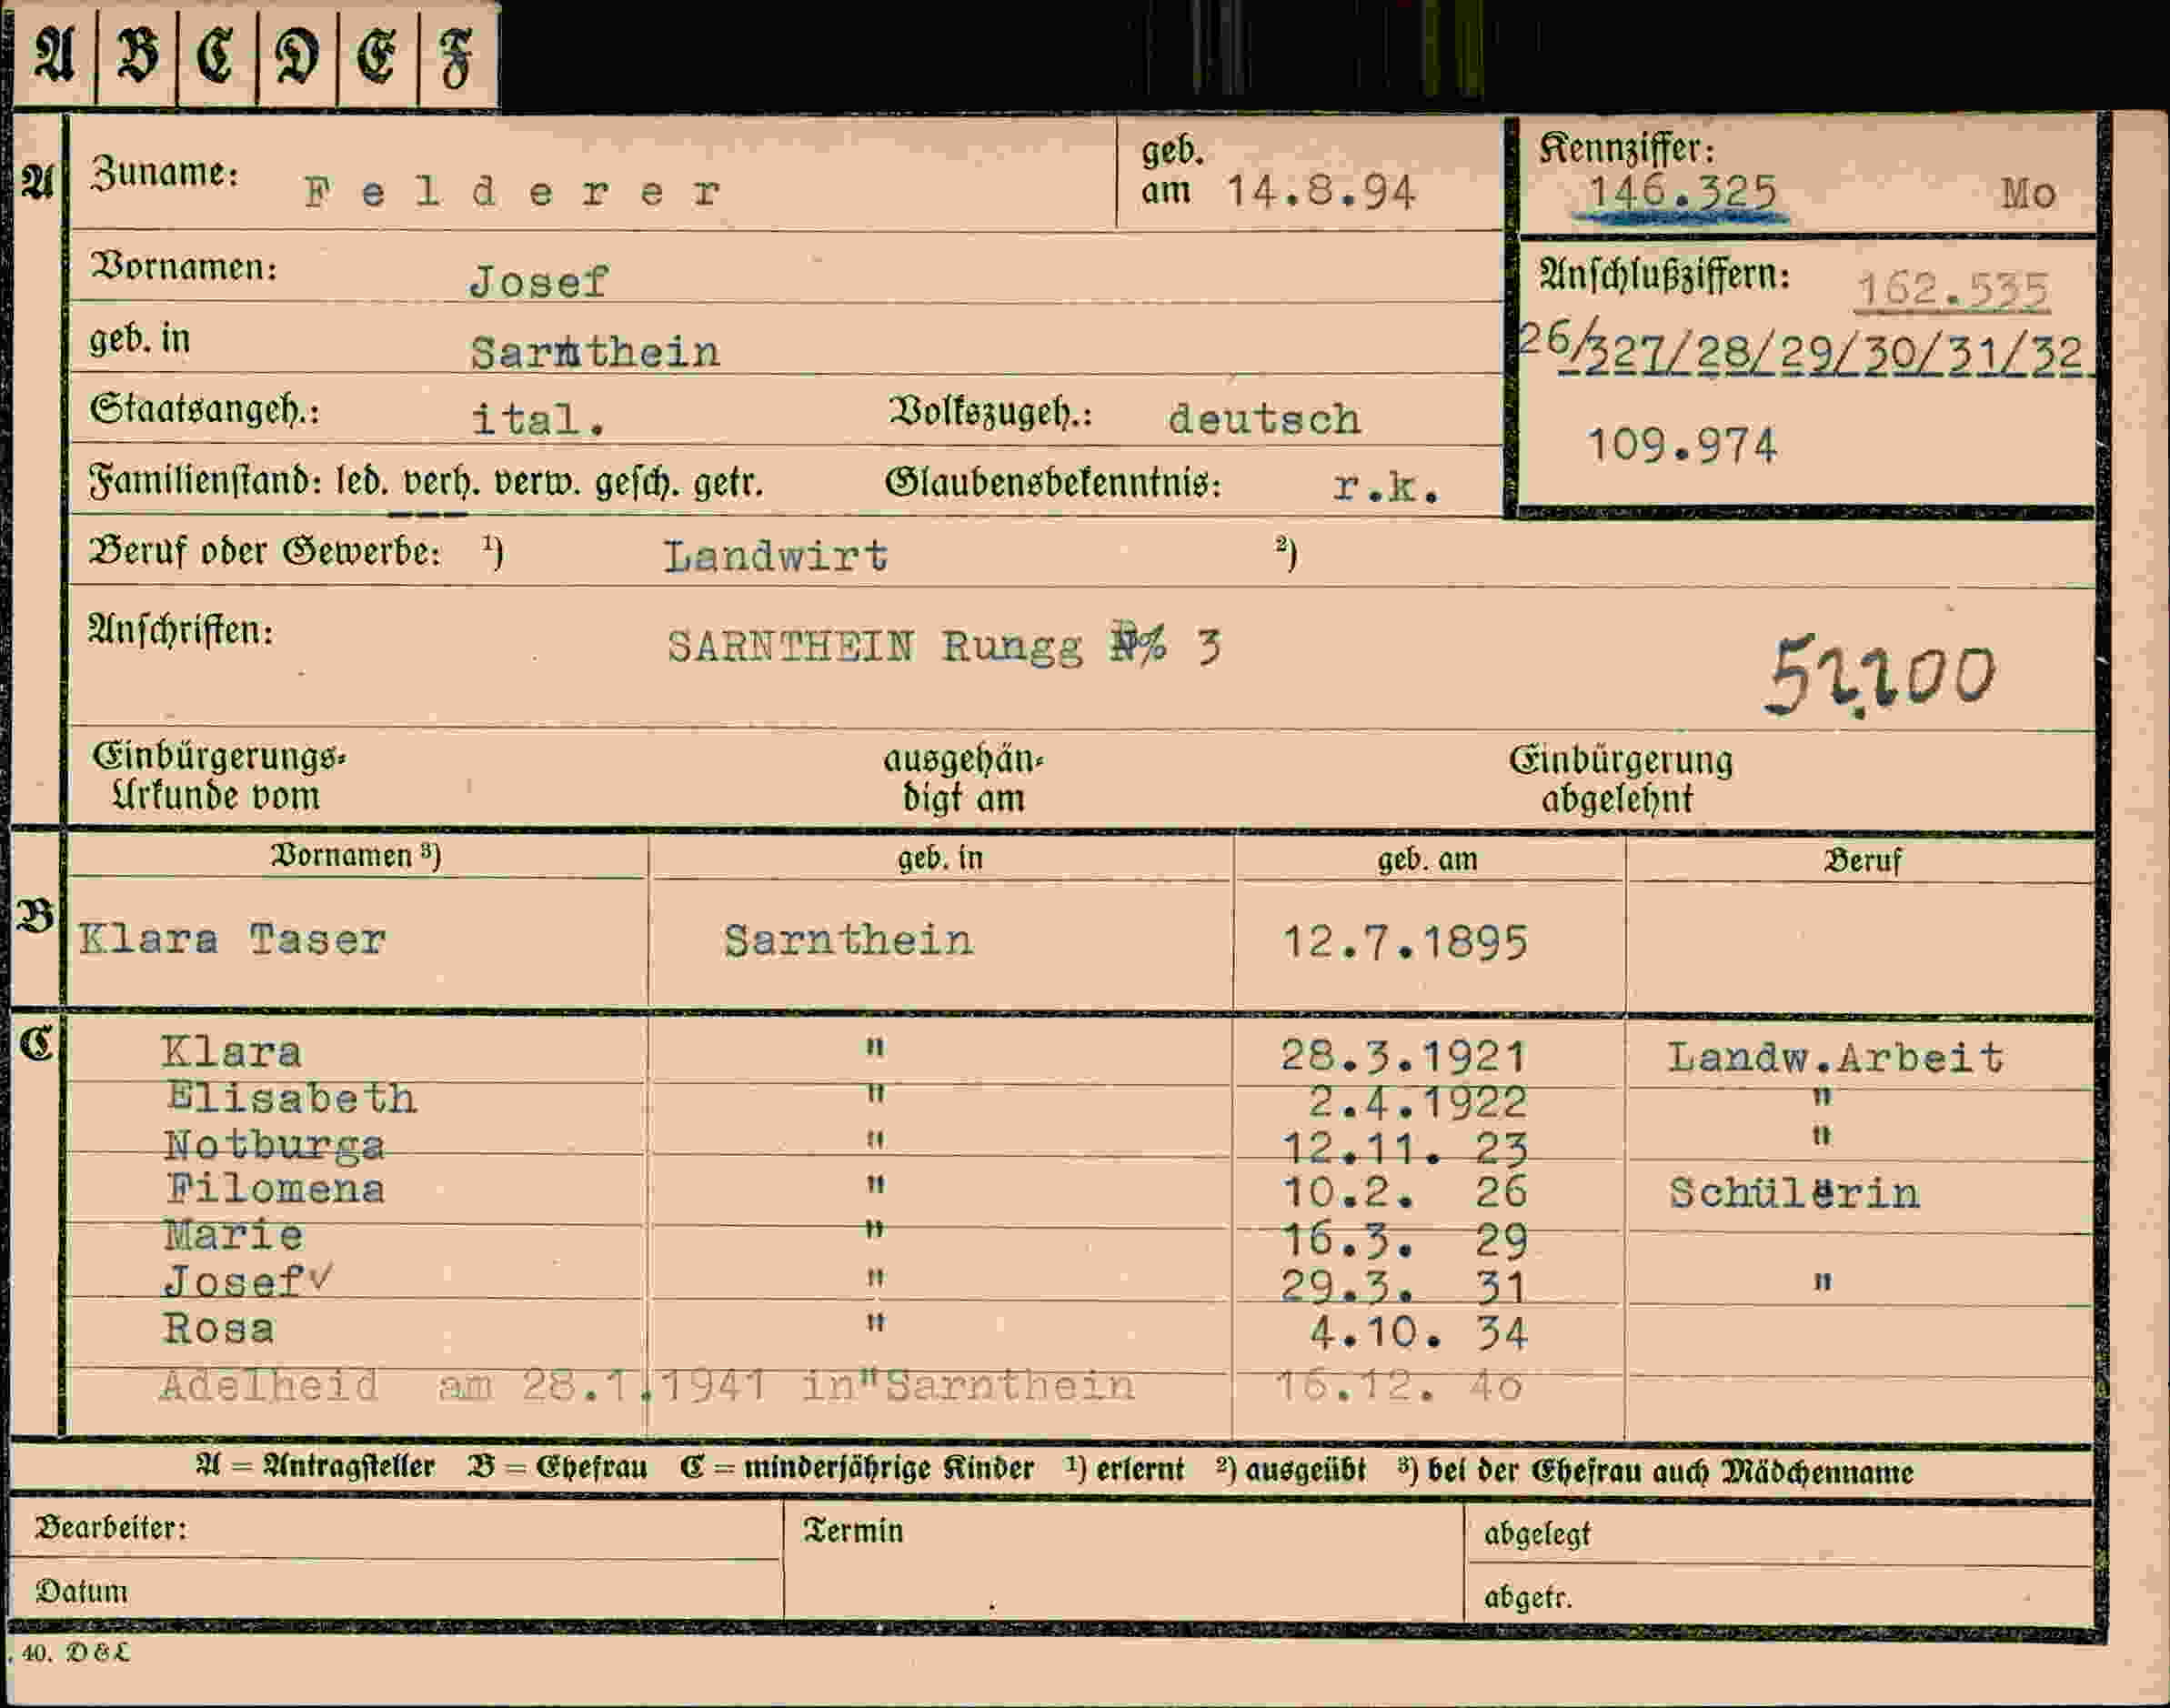 A B C D E F
A Zuname: Felderer geb. am 14.8.94 Kennziffer: 146.325 Mo
Vornamen: Josef Anschlußziffern: 162.535
geb. in Sarnthein 26/327/28/29/30/31/32
Staatsangeh.: ital. Volkszugeh.: deutsch 109.974
Familienstand: led. verh. verw. gesch. getr. Glaubensbekenntnis: r.k.
Beruf oder Gewerbe: ¹) Landwirt ²)
Anschriften: SARNTHEIN Rungg % 3
Einbürgerungs-Urkunde vom ausgehändigt am Einbürgerung abgelehnt
Vornamen ³) geb. in geb. am Beruf
B Klara Taser Sarnthein 12.7.1895
C Klara " 28.3.1921 Landw.Arbeit
Elisabeth " 2.4.1922 "
Notburga " 12.11. 23 "
Filomena " 10.2. 26 Schülerin
Marie " 16.3. 29
Josef✓ " 29.3. 31 "
Rosa " 4.10. 34
Adelheid am 28.1.1941 in"Sarnthein 16.12. 40
A = Antragsteller B = Ehefrau C = minderjährige Kinder ¹) erlernt ²) ausgeübt ³) bei der Ehefrau auch Mädchenname
Bearbeiter: Termin abgelegt
Datum abgetr.
. 40. D & L